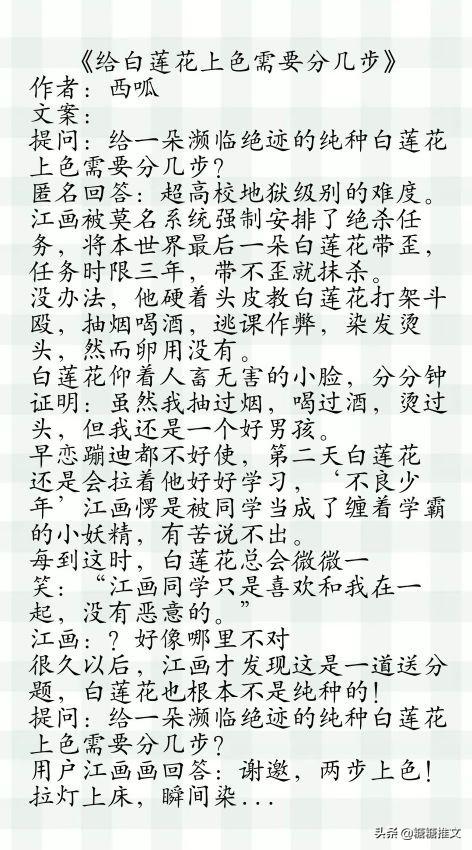 《给白莲花上色需要分几步》
作者：西呱
文案：
提问：给一朵濒临绝迹的纯种白莲花
上色需要分几步？
匿名回答：超高校地狱级别的难度。
江画被莫名系统强制安排了绝杀任
务，将本世界最后一朵白莲花带歪，
任务时限三年，带不歪就抹杀。
没办法，他硬着头皮教白莲花打架斗
殴，抽烟喝酒，逃课作弊，染发烫
头，然而卵用没有。
白莲花仰着人畜无害的小脸，分分钟
证明：虽然我抽过烟，喝过酒，烫过
头，但我还是一个好男孩。
早恋蹦迪都不好使，第二天白莲花
还是会拉着他好好学习，‘不良少
年’江画愣是被同学当成了缠着学霸
的小妖精，有苦说不出。
每到这时，白莲花总会微微一
笑：“江画同学只是喜欢和我在一
起，没有恶意的。”
江画：？好像哪里不对
很久以后，江画才发现这是一道送分
题，白莲花也根本不是纯种的！
提问：给一朵濒临绝迹的纯种白莲花
上色需要分几步？
用户江画画回答：谢邀，两步上色！
拉灯上床，瞬间染...
头条@糖糖推文